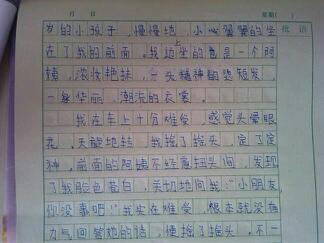 月 日 星期( ) 批语
岁的小孩子,慢慢地,小心翼翼的坐
在了我的前面。我边上坐的竟是一个阿
姨,浓妆艳抹,一头精神的烫短发,
一身华丽、潮流的衣裳。
我在车上十分难受,感觉头晕眼
花,天旋地转,我摇了摇头,定了定
神,前面的阿姨不经意扭头间,发现
了我脸色苍白,关切地问我:“小朋友,
你没事吧!”我实在难受,根本就没有
力气回答她的话,便摇了摇头。不一